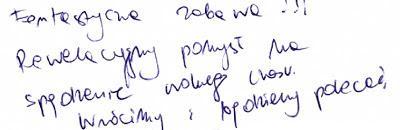 Fantastyczna zabawa!!!
Rewelacyjny pomysł na
spędzenie wolnego czasu.
Wrócimy i będziemy polecać,